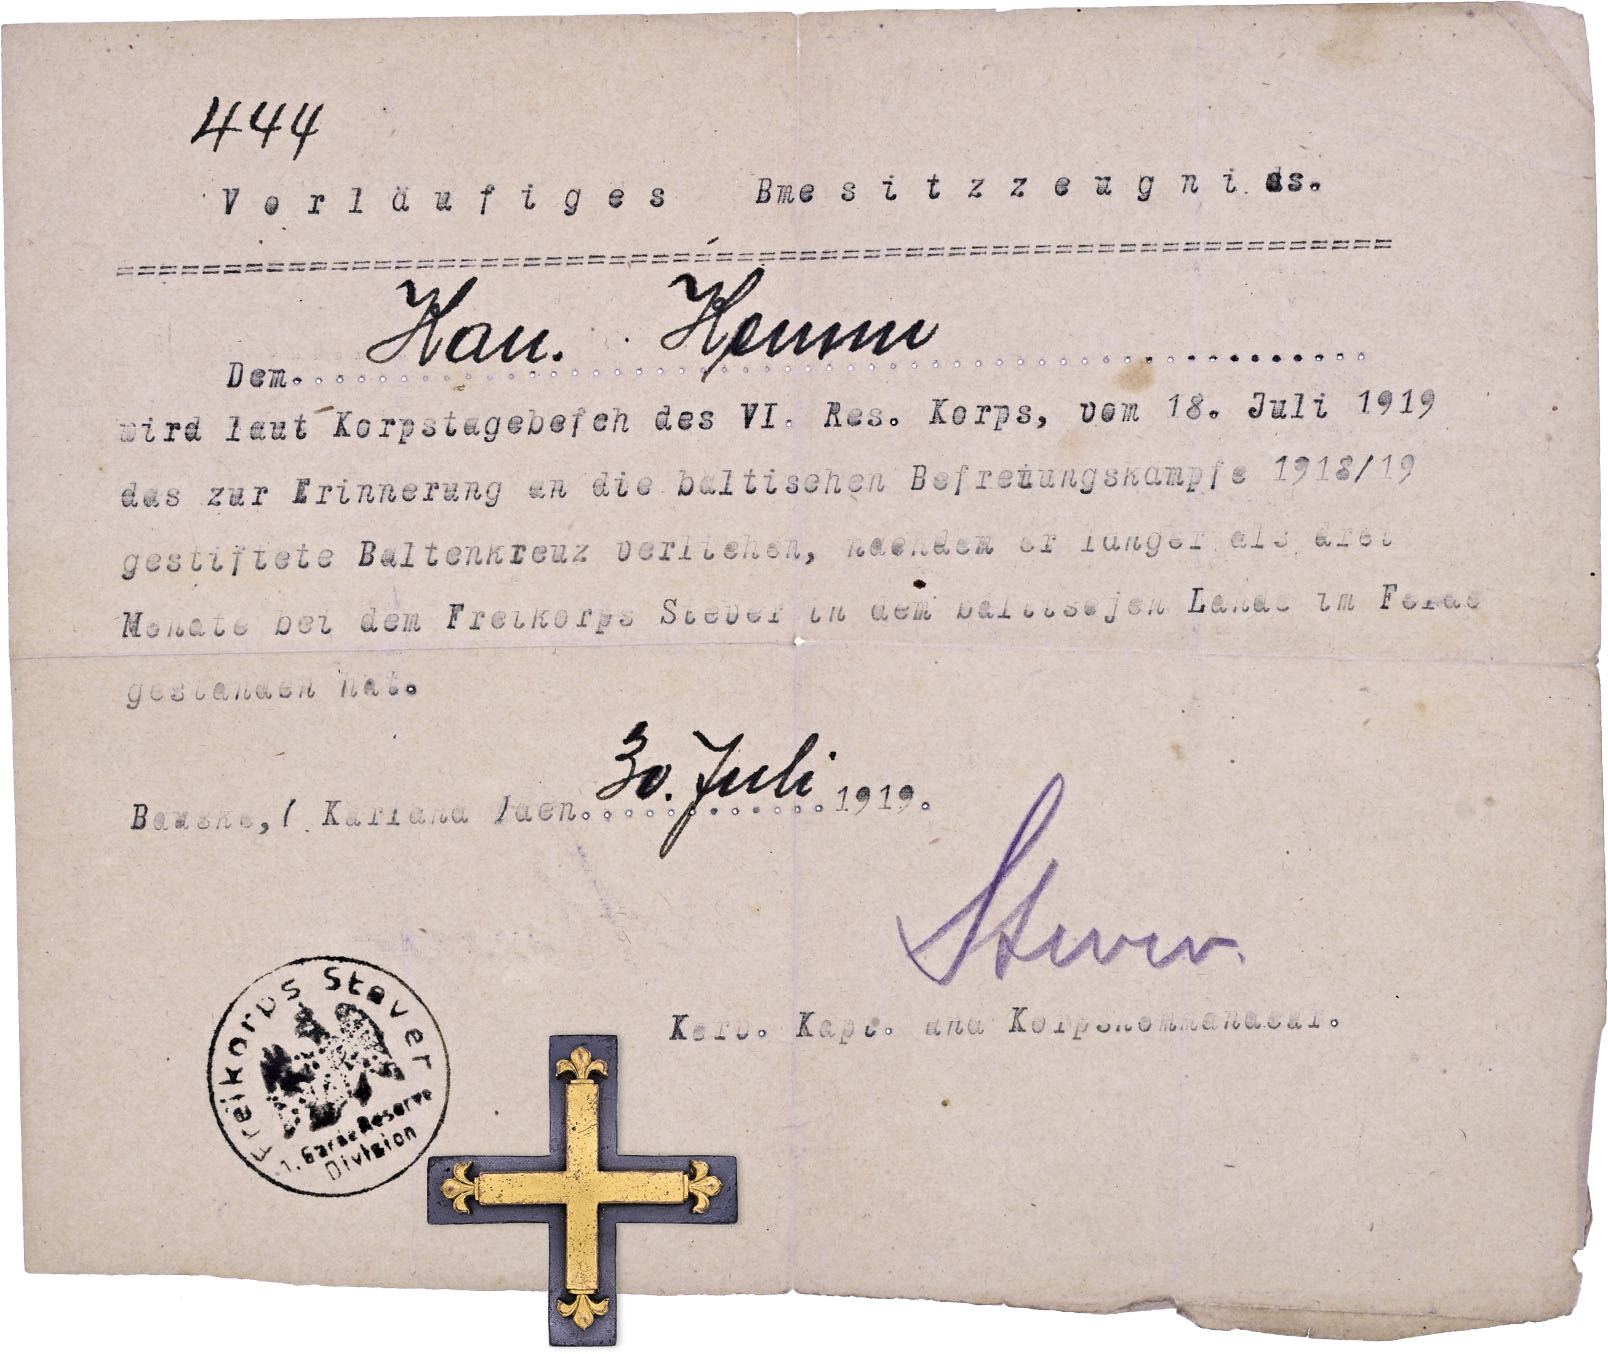 444
Vorläufiges Bmesitzzeugnis.
Kan. Hemm
Dem
wird laut Korpstagebefeh des VI. Res. Korps, vom 18. Juli 1919
das zur Erinnerung an die baltischen Befreiungskämpfe 1918/19
gestiftete Baltenkreuz verliehen, nachdem er länger als drei
Monate bei dem Freikorps Stever in dem baltisejen Lande im Felde
gestanden hat.
30. Juli
Bauske, /. Karland /den 1919.
Stever
Korv. Kapt. und Korpskommandeur.
Freikorps Stever
1. Garde Reserve
Division